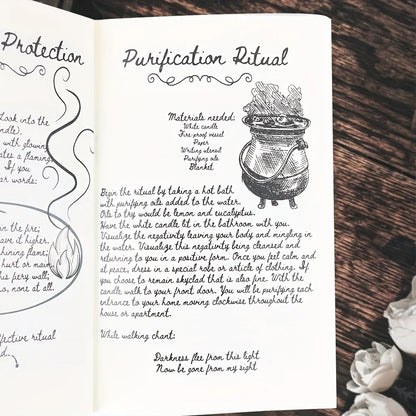 Protection
Look into the
candle).
with glowing
ates a flaming
If you
er words:
in the fire;
ave it higher
hining flame;
hurt or maim
is fiery wall;
o, none at all.
ffective ritual
d.
Purification Ritual
Materials needed:
White candle
Fire-proof vessel
Paper
Writing utensil
Purifying oils
Blanket
Begin the ritual by taking a hot bath
with purifying oils added to the water.
Oils to try would be lemon and eucalyptus.
Have the white candle lit in the bathroom with you.
Visualize the negativity leaving your body and mingling in
the water. Visualize this negativity being cleansed and
returning to you in a positive form. Once you feel calm and
at peace, dress in a special robe or article of clothing. If
you choose to remain skyclad that is also fine. With the
candle walk to your front door. You will be purifying each
entrance to your home moving clockwise throughout the
house or apartment.
While walking chant:
Darkness flee from this light
Now be gone from my sight